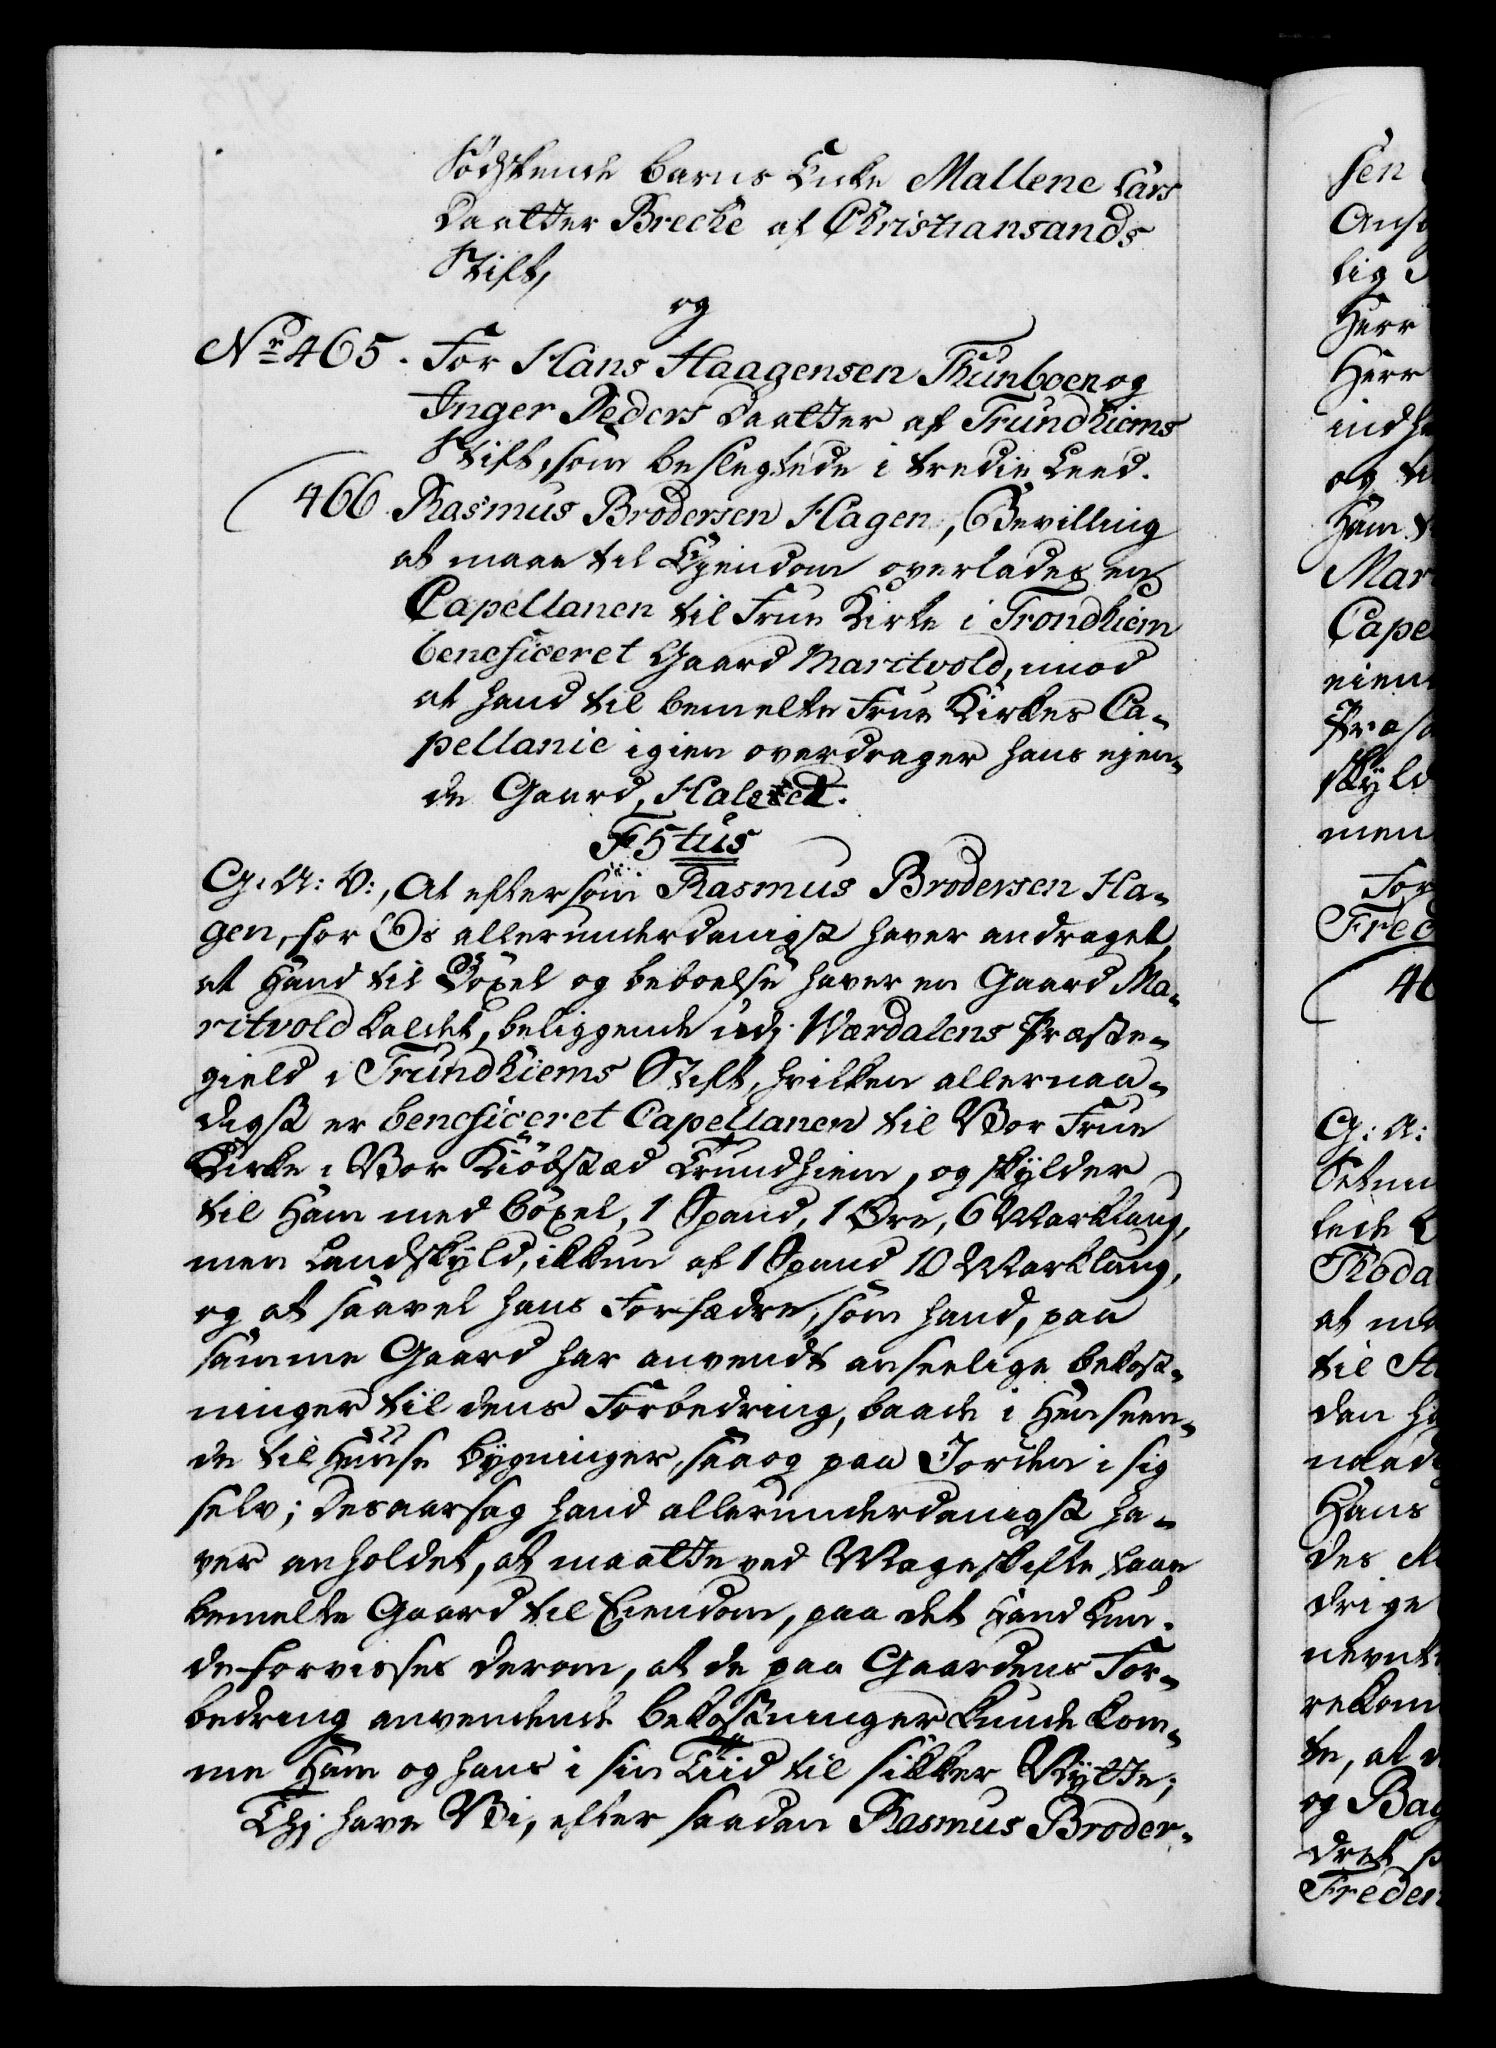 Södskende Barns Encke Mallene Lars
Daatter Breche af Christiansands
Stift,
og
No. 465. For Hans Haagensen Thunboen og
Inger Peders Daatter af Trundhiems
Stift, som beslegtede i tredie Leed.
466. Rasmus Brodersen Hagen, Bevilling
at maae til Eyendom overlades en
Capellanen til Frue Kirke i Trondhiem
beneficeret Gaard Maritvold, imod
at hand til bemelte Frue Kirkes Ca-
pellanie igien overdrager hans eyen-
de Gaard, Halset.
F 5tus
G: A: V:, At eftersom Rasmus Brodersen Ha-
gen, for Os allerunderdanigst haver andraget,
at Hand til Böxel og beboelse haver en Gaard Ma-
ritvold kaldet, beliggende udj Værdalens Præste-
gield i Trundhiems Stift, hvilken allernaa-
digst er beneficeret Capellanen til Vor Frue
Kirke i Vor Kiöbstæd Trundhiem, og skylder
til Ham med böxel, 1 Spand, 1 Øre, 6 Marklaug,
men Landskyld, ikkun af 1 Spand 10 Marklaug,
og at saavel hans Forfædre, som hand, paa
samme Gaard har anvendt anseelige bekost-
ninger til dens Forbedring, baade i Henseen-
de til Huuse bygninger, saa og paa Jorden i sig
selv; Desaarsag hand allerunderdanigst ha-
ver anholdet, at maatte ved Mageskifte faae
bemelte Gaard til Eiendom, paa det Hand kun-
de forvisses derom, at de paa Gaardens For-
bedring anvendende bekostninger kunde kom-
me Ham og hans i sin Tiid til sikker Nytte;
Thj have Vi, efter saadan Rasmus Broder-